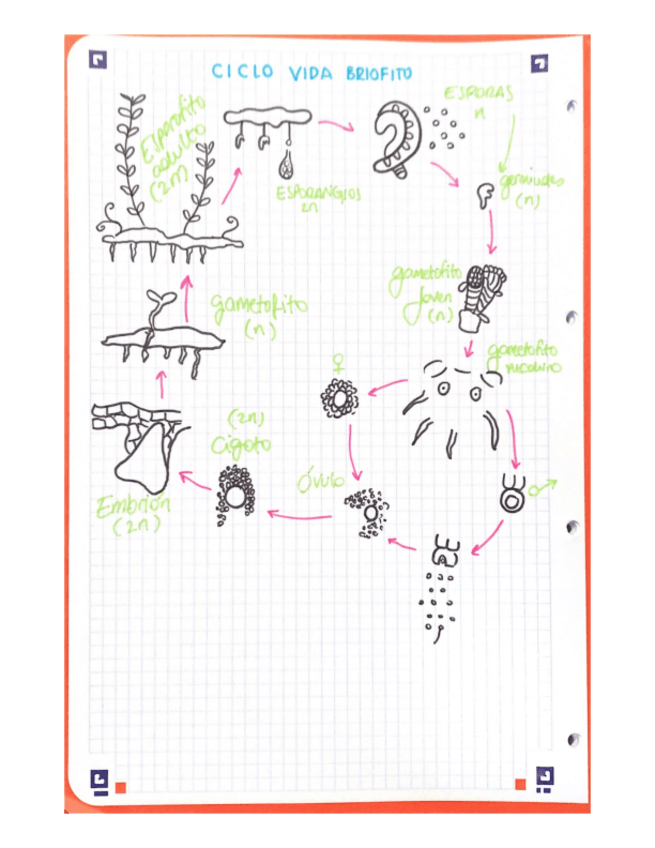 CICLO VIDA BRIOFITO
Esporofito
adulto
(2n)
ESPORANGIOS
2n
ESPORAS
n
(n)
gametofito
Joven
(n)
gametofito
gametofito
(n)
♀
♂
(2n)
Cigoto
Óvulo
Embrión
(2n)